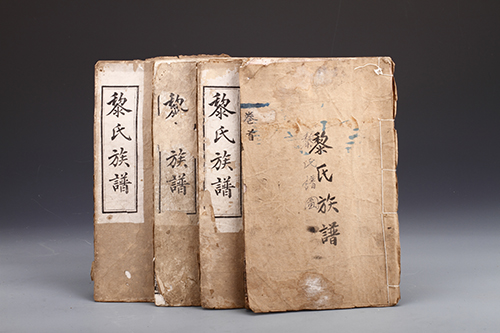 黎氏族譜
黎氏族譜
黎氏族譜
卷首
黎氏族譜